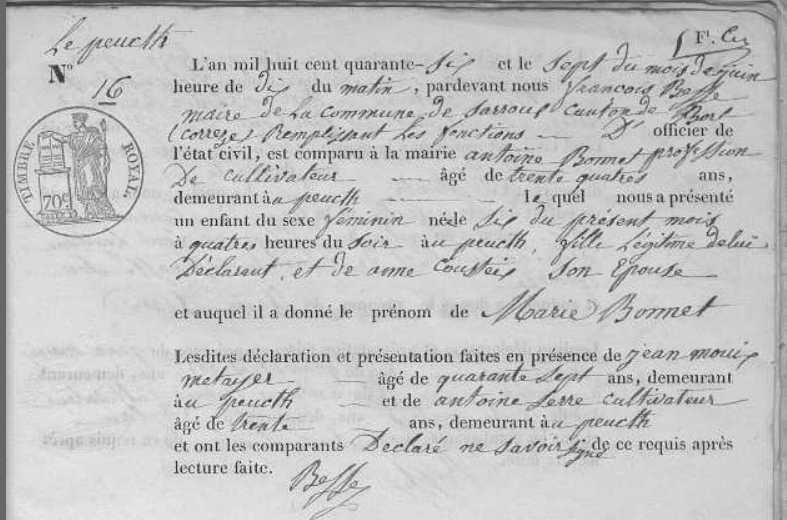 Le peucth
Nº 16
Ft. Cer
TIMBRE ROYAL
70c
L'an mil huit cent quarante-six et le sept du mois de juin
heure de dix du matin, pardevant nous françois Besse
maire de la commune de Sarroux canton de Bort
(correze) Remplissant les fonctions D' officier de
l'état civil, est comparu à la mairie antoine Bonnet profession
De cultivateur âgé de trente quatres ans,
demeurant à au peucth lequel nous a présenté
un enfant du sexe féminin née le six du présent mois
à quatres heures du soir au peucth, fille légitime de lui
Déclarant, et de anne Cousteix son Epouse
et auquel il a donné le prénom de Marie Bonnet
Lesdites déclaration et présentation faites en présence de jean mouix
metayer âgé de quarante sept ans, demeurant
à au peucth et de antoine serre cultivateur
âgé de trente ans, demeurant à au peucth
et ont les comparants Declaré ne savoir signé de ce requis après
lecture faite.
Besse